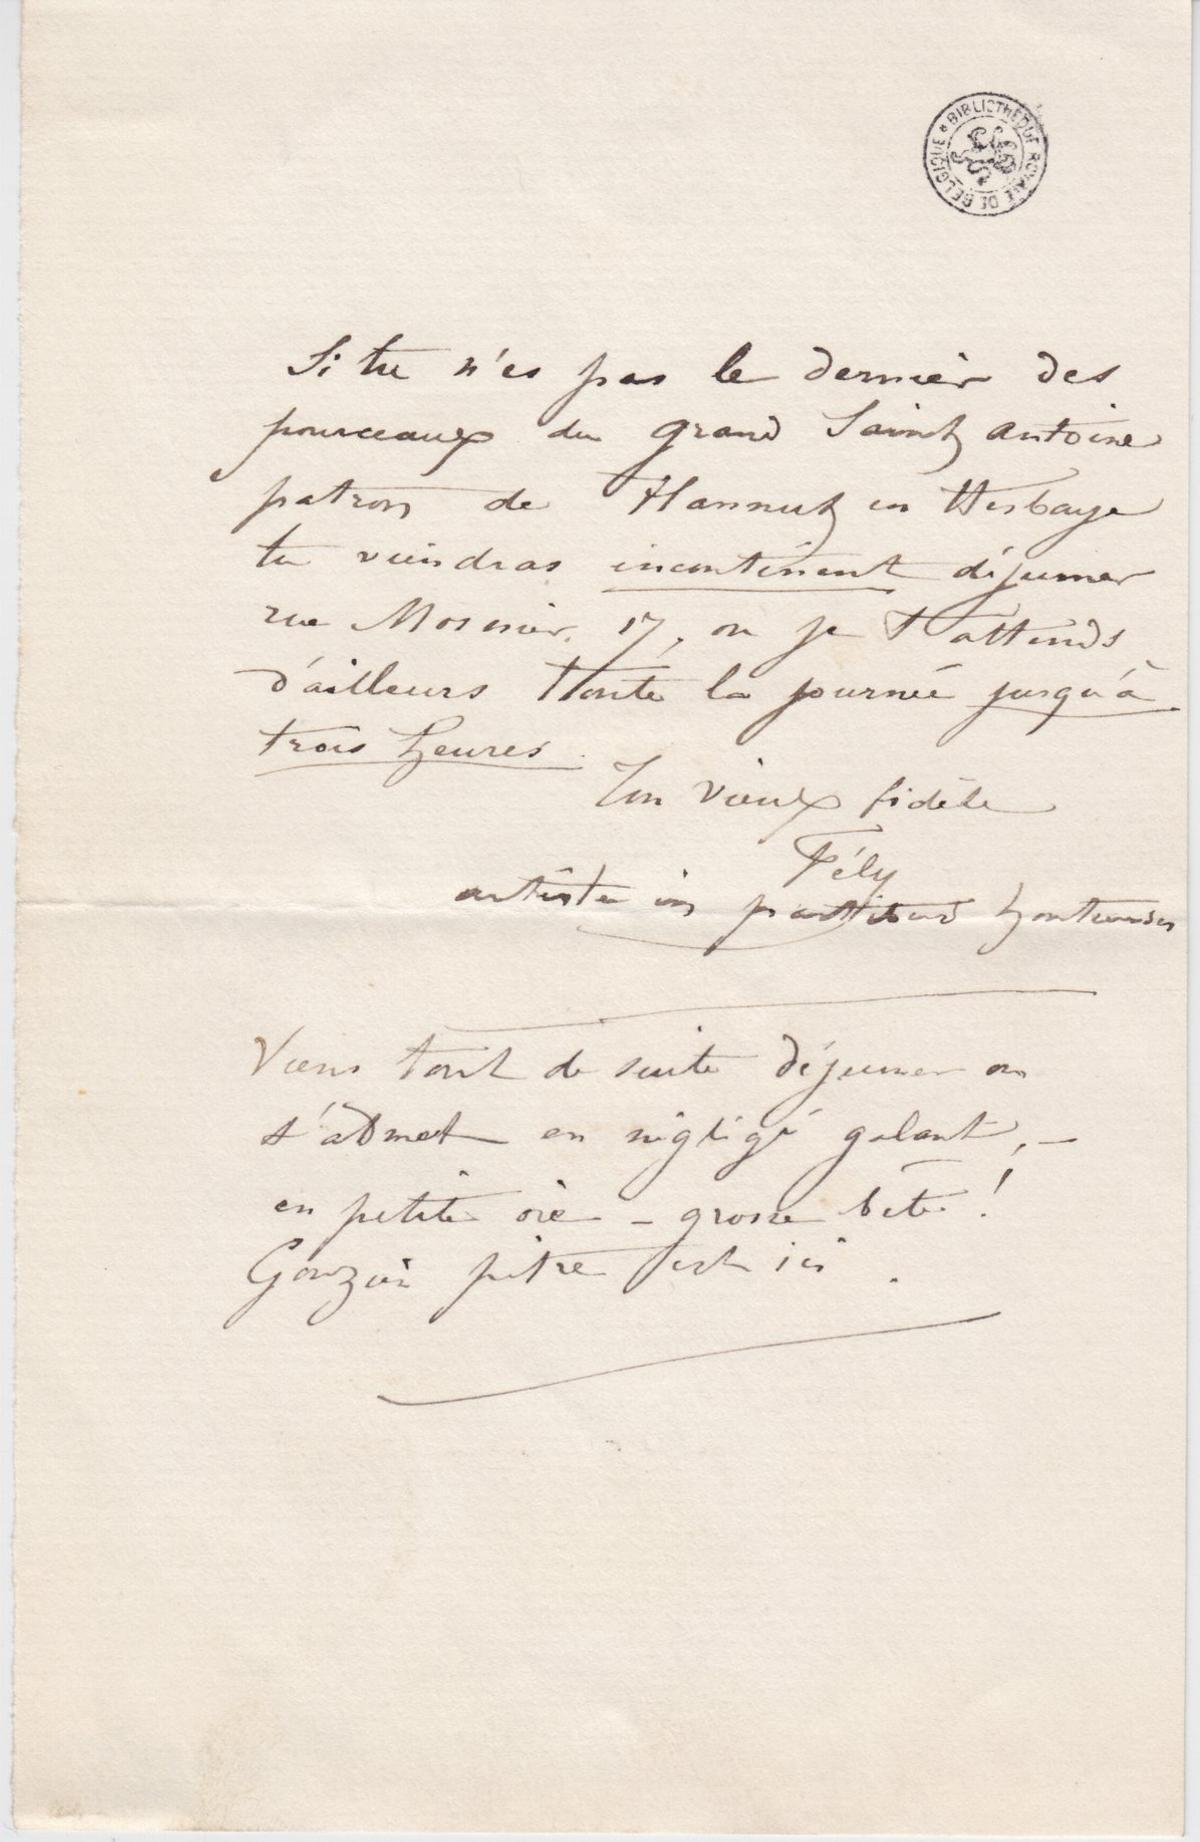 BIBLIOTHÈQUE ROYALE DE BELGIQUE
Si tu n'es pas le dernier des
pourceaux du grand Saint Antoine
patron de Hannut en Hesbaye
tu viendras incontinent déjeuner
rue Mosnier, 17, ou je t'attends
d'ailleurs toute la journée jusqu'à
trois heures.
Ton vieux fidèle
Fély
artiste in
Viens tout de suite déjeuner on
t'admet en négligé galant, –
en petite oie – grosse bête !
pitre est ici .